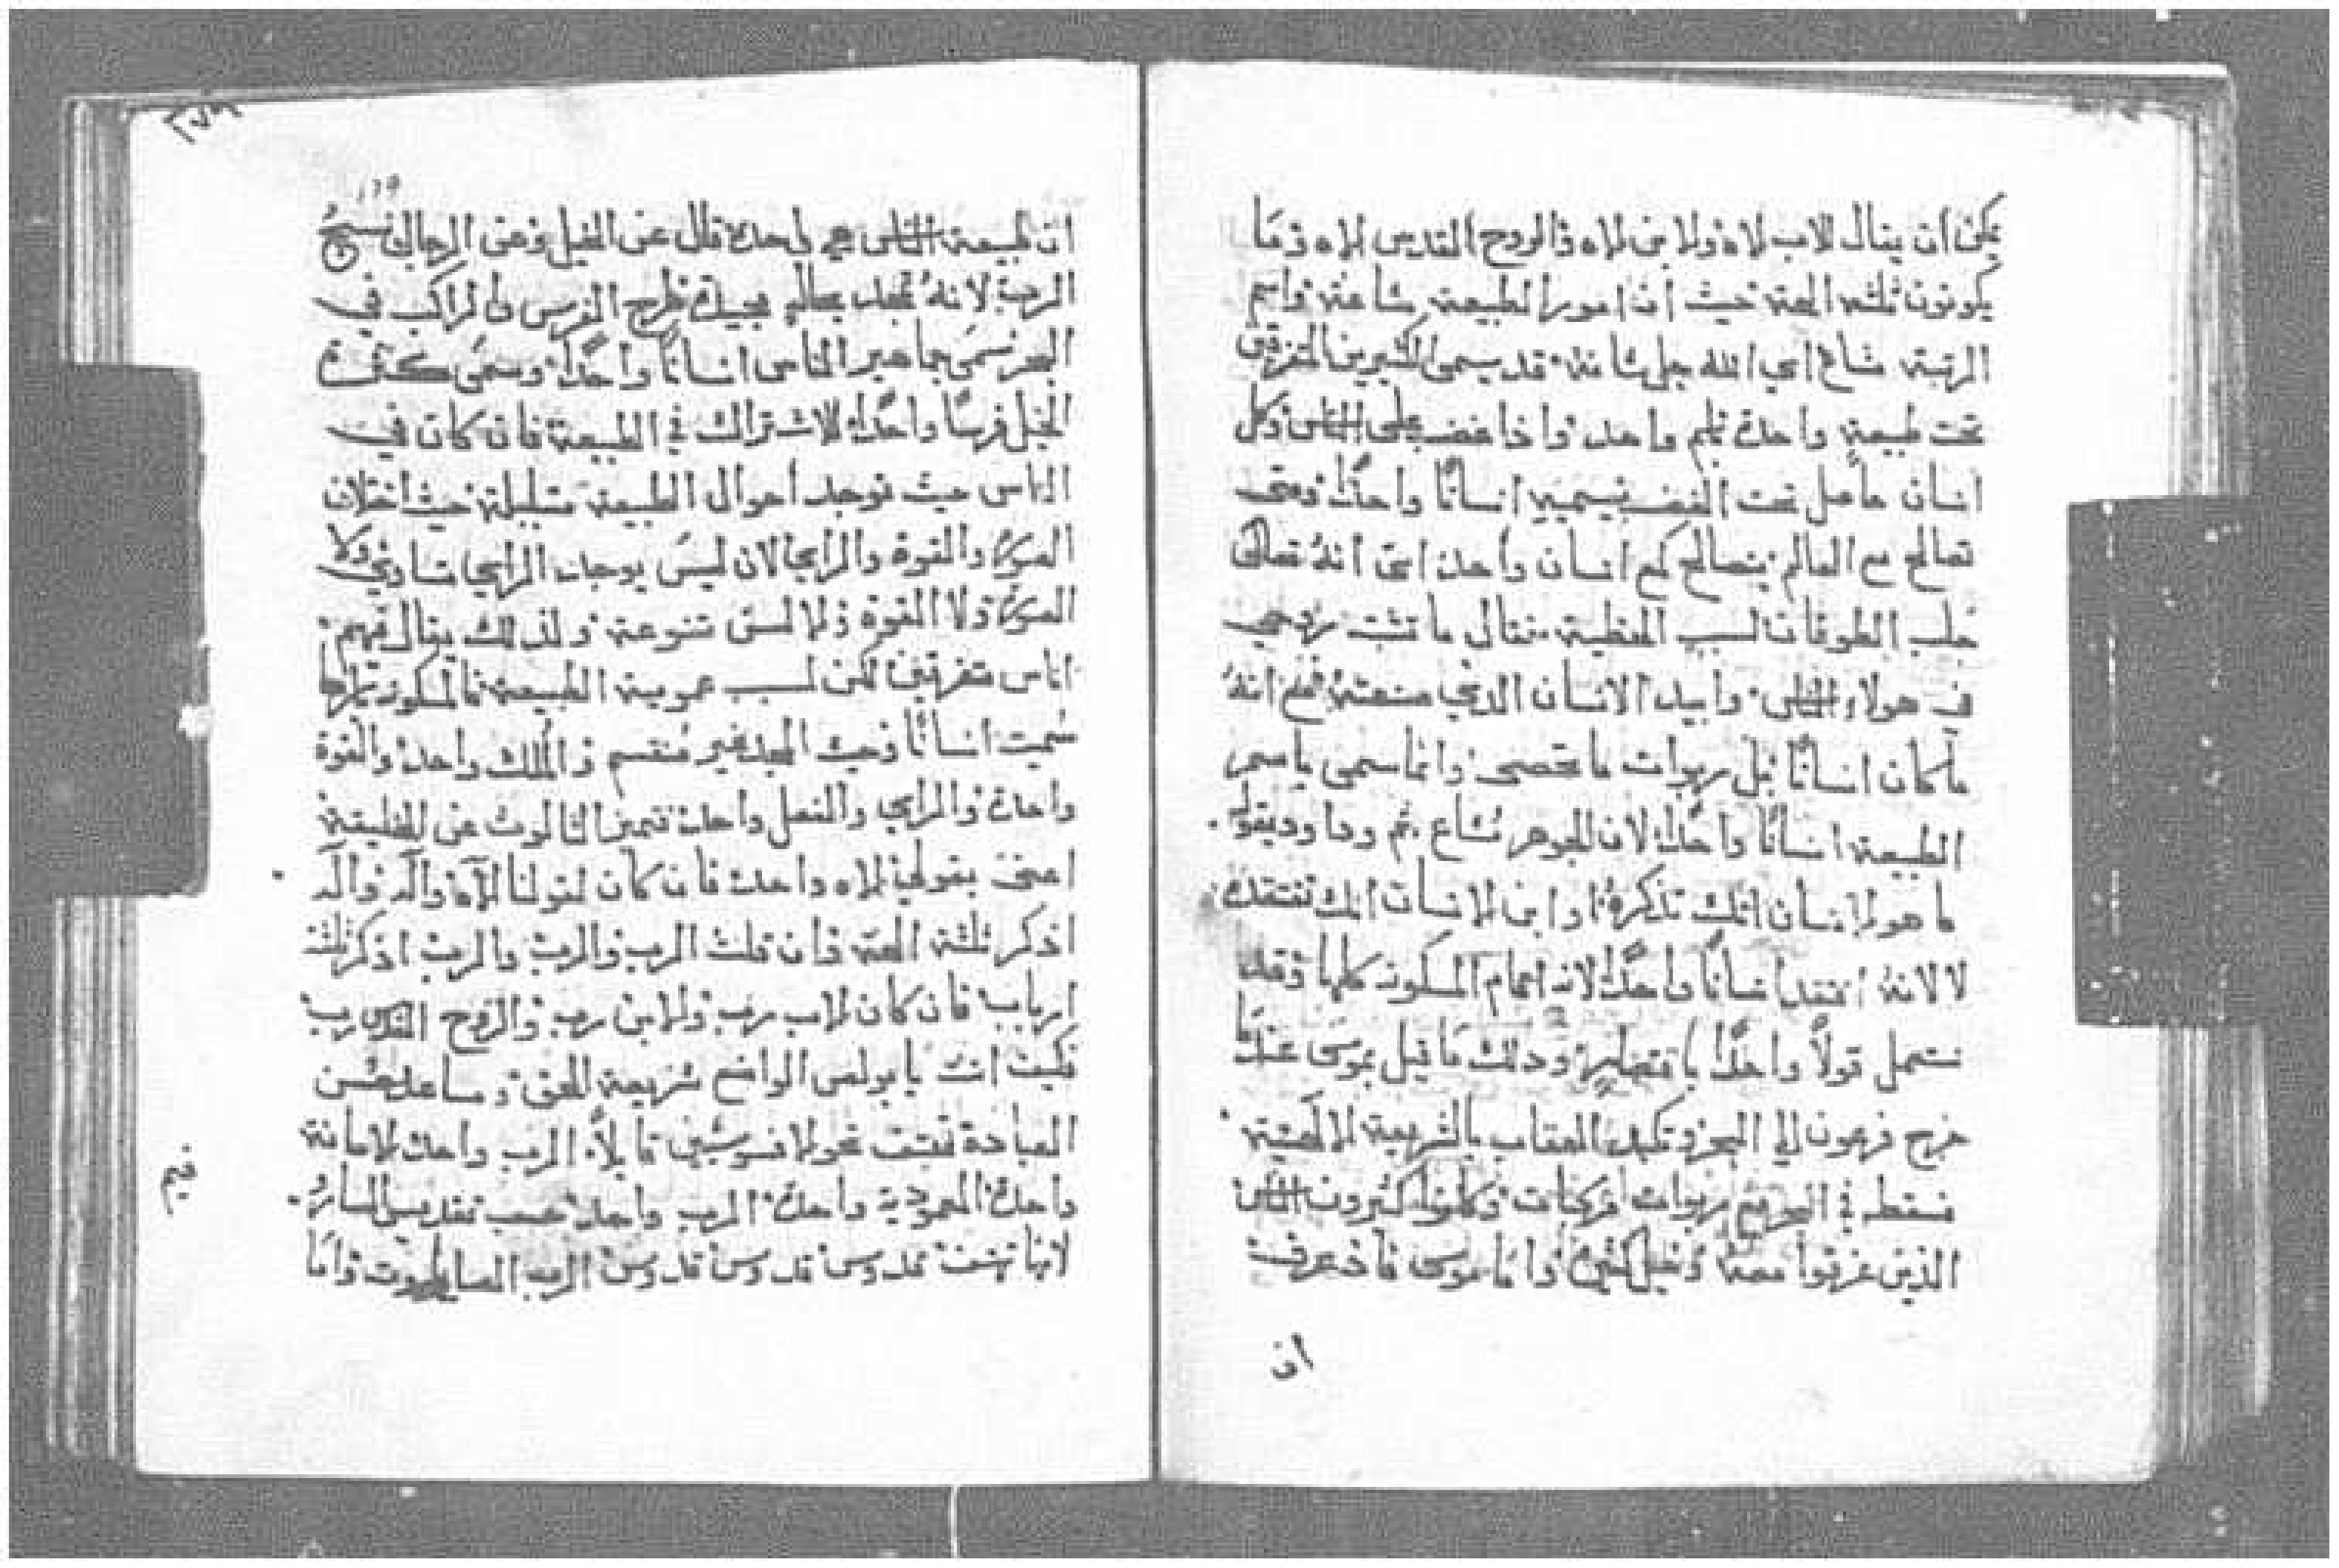 يمكن أن يقال الاب الاه والابن الاه والروح القدس الاه وما
يكونون ثلثه الهة حيث ان امور الطبيعة مشاعة واسم
الرتبة مشاع اي الله جل شانه قد يسمى الكثيرين المتفرقين
تحت طبيعة واحدة باسم واحد واذا غضب على الناس وكل
انسان حاصل تحت الغضب يسميهم انسانًا واحدًا ومتى
تصالح مع العالم يتصالح كمع انسان واحد اعني انهُ تعالى
جلب الطوفان لسبب الخطية فقال ما تثبت روحي
في هولاء الناس وابيد الانسان الذي صنعتهُ فمع انهُ
ما كان انسانًا بل ربوات ما تحصى وانما سمي باسم
الطبيعة انسانًا واحدًا لان الجوهر مشاع ثم وداوود يقول
ما هو الانسان انك تذكرهُ او ابن الانسان انك تفتقده
لا لانهُ افتقد انسانًا واحدًا لانه امام المسكونه كلها وقد
نستعمل قولًا واحدًا وذلك ما قيل بموسى عندما
خرج فرعون الي البحر وتكبد العقاب بالشريعة الالهية
فسقط في البحر مع ربوات مركبات وكانوا كثيرون الناس
الذين غرقوا معهُ وخيل كثيرة واما موسى فاذ عرف
ان
ان طبيعة الناس هي واحدة قال عن الخيل وعن الرجال نسبح
الرب لانهُ تمجد طرح الفرس والراكب في
البحر سمى جماهير الناس انسانًا واحدًا وسمى كثرة
الخيل فرسًا واحدًا للاشتراك في الطبيعة فان كان في
الناس حيث توجد أحوال الطبيعة متبلبلة حيث اختلاف
الصورة والقوة والراي لان ليس يوجد الراي متساوي ولا
الصورة ولا القوة والالسن متنوعة ولذلك يقال فيهم
اناس متفرقين لكن لسبب عمومية الطبيعة فالمسكونة كلها
سُميت انسانًا وحيث المجد غير مُنقسم والملك واحد والقوة
واحدة والراي والفعل واحد نتميز الثالوث عن الخليقة
اعني بقولي الاه واحد فان كان لقولنا الاه والاه والاه
اذكر ثلثة الهة وان قلت الرب والرب والرب اذكر ثلثة
ارباب فان كان الاب رب والابن رب والروح القدس رب
فكيف انت يا بولس الواضع شريعة الحق وساعد حسن
العبادة تهتف نحو الافسوسيين قايلًا الرب واحد الامانة
واحدة المعمودية واحدة الرب واحد حسب تقديس
لانها تهتف قدوس قدوس قدوس الرب الصاباووت واما